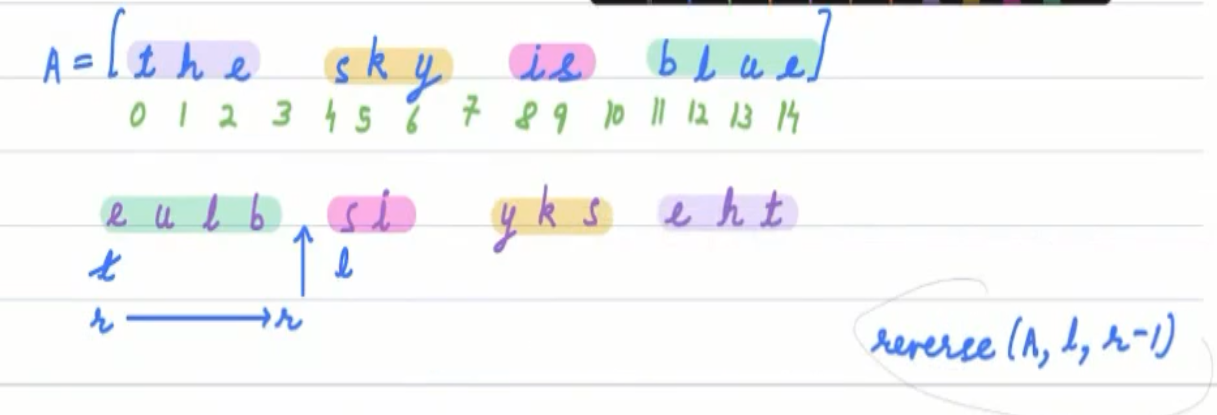 A = [ t h e s k y i s b l u e ]
0 1 2 3 4 5 6 7 8 9 10 11 12 13 14
e u l b s i y k s e h t
l l
r r
reverse (A, l, r-1)